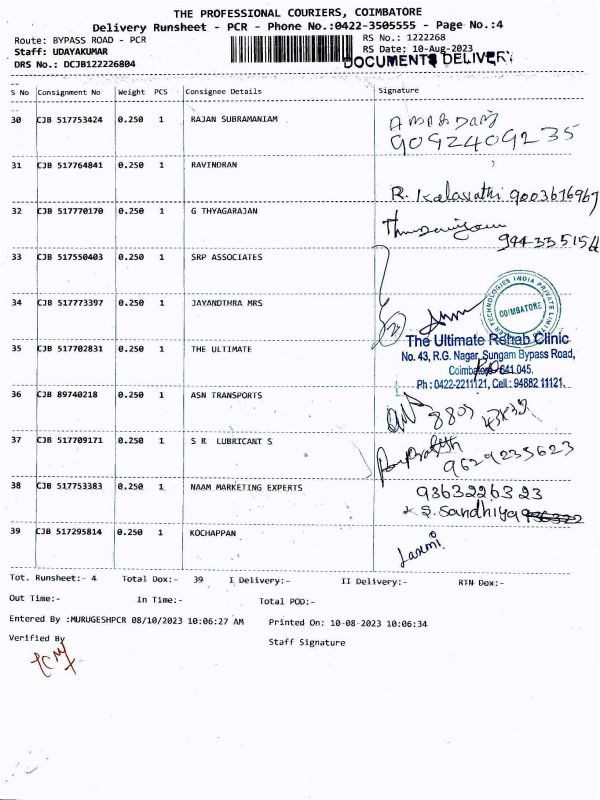 THE PROFESSIONAL COURIERS, COIMBATORE
Delivery Runsheet - PCR - Phone No.:0422-3505555 - Page No.:4
Route: BYPASS ROAD - PCR
RS No.: 1222268
Staff: UDAYAKUMAR
RS Date: 10-Aug-2023
DRS No.: DCJB122226804
DOCUMENTS DELIVERY
S No Consignment No Weight PCS Consignee Details Signature
30 CJB 517753424 0.250 1 RAJAN SUBRAMANIAM
9092409235
31 CJB 517764841 0.250 1 RAVINDRAN
R. Kalavathi 9003676967
32 CJB 517770170 0.250 1 G THYAGARAJAN
33 CJB 517550403 0.250 1 SRP ASSOCIATES
TECHNOLOGIES INDIA PRIVATE LIMITED
COIMBATORE
34 CJB 517773397 0.250 1 JAYANDTHRA MRS
2
The Ultimate Rehab Clinic
35 CJB 517702831 0.250 1 THE ULTIMATE
No. 43, R.G. Nagar, Sungam Bypass Road,
Coimbatore - 641 045.
Ph : 0422-2211121, Cell : 94882 11121.
36 CJB 89740218 0.250 1 ASN TRANSPORTS
37 CJB 517709171 0.250 1 S R LUBRICANT S
9629235623
38 CJB 517753383 0.250 1 NAAM MARKETING EXPERTS
9363226323
S. Sandhiya
39 CJB 517295814 0.250 1 KOCHAPPAN
Laxmi
Tot. Runsheet:- 4 Total Dox:- 39 I Delivery:- II Delivery:- RTN Dox:-
Out Time:- In Time:- Total POD:-
Entered By :MURUGESHPCR 08/10/2023 10:06:27 AM Printed On: 10-08-2023 10:06:34
Verified By
Staff Signature